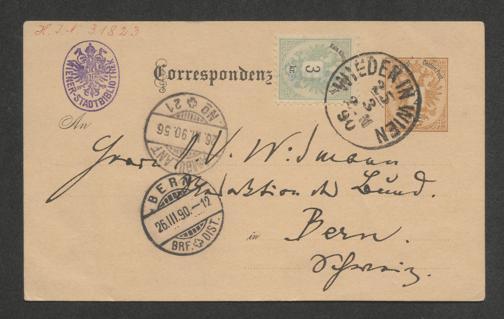 H.I.N. 31823
WIENER-STADTBIBLIOTHEK
Correspondenz
3
WIEDEN IN WIEN
25 3
90
No 21
26.III.90.56
AMBULANT
An
Herrn J. V. Widmann
Redaktion des Bund.
BERN
26.III.90.-12
BRF. DIST.
in
Bern.
Schweiz.